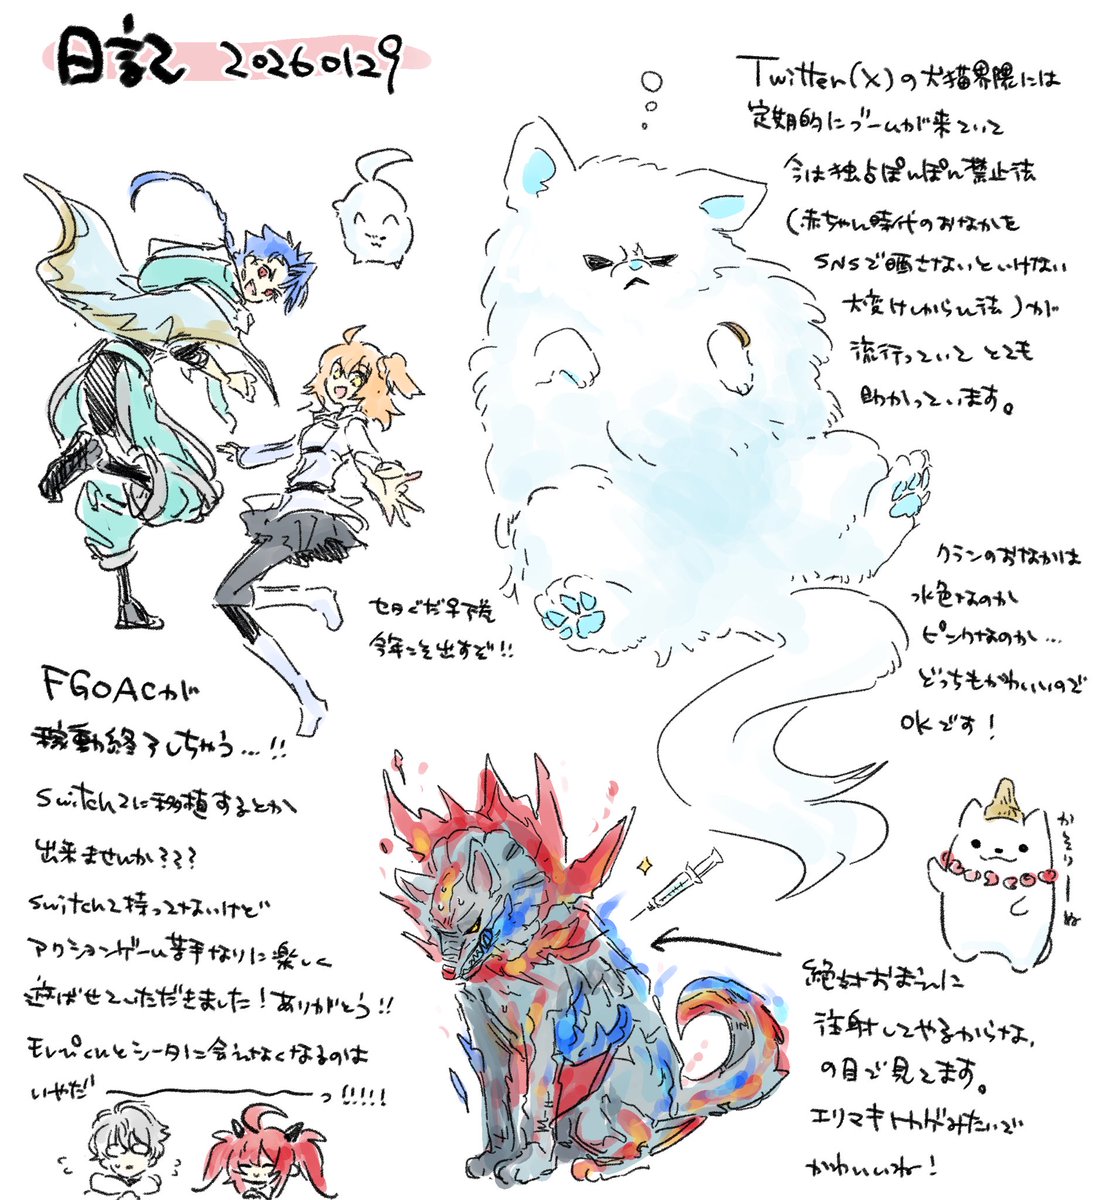 日記 20260129
Twitter(X)の犬猫界隈には
定期的にブームが来ていて
今は独占ぽんぽん禁止法
(赤ちゃん時代のおなかを
SNSで晒さないといけない
大変けしからん法)が
流行っていて とても
助かっています。
クランのおなかは
水色なのか
ピンクなのか…
どっちもかわいいので
OKです!
セタぐだ♀
今年こそ出すぞ!!
FGOACが
稼動終了しちゃう…!!
Switch2に移植するとか
出来ませんか???
Switch2持ってないけど
アクションゲーム苦手なりに楽しく
遊ばせていただきました!ありがとう!!
モレーくんとシータに会えなくなるのは
いやだーーーっ!!!!!
かそりーぬ
絶対おまえに
注射してやるからな、
の目で見てます。
エリマキトカゲみたいで
かわいいね!